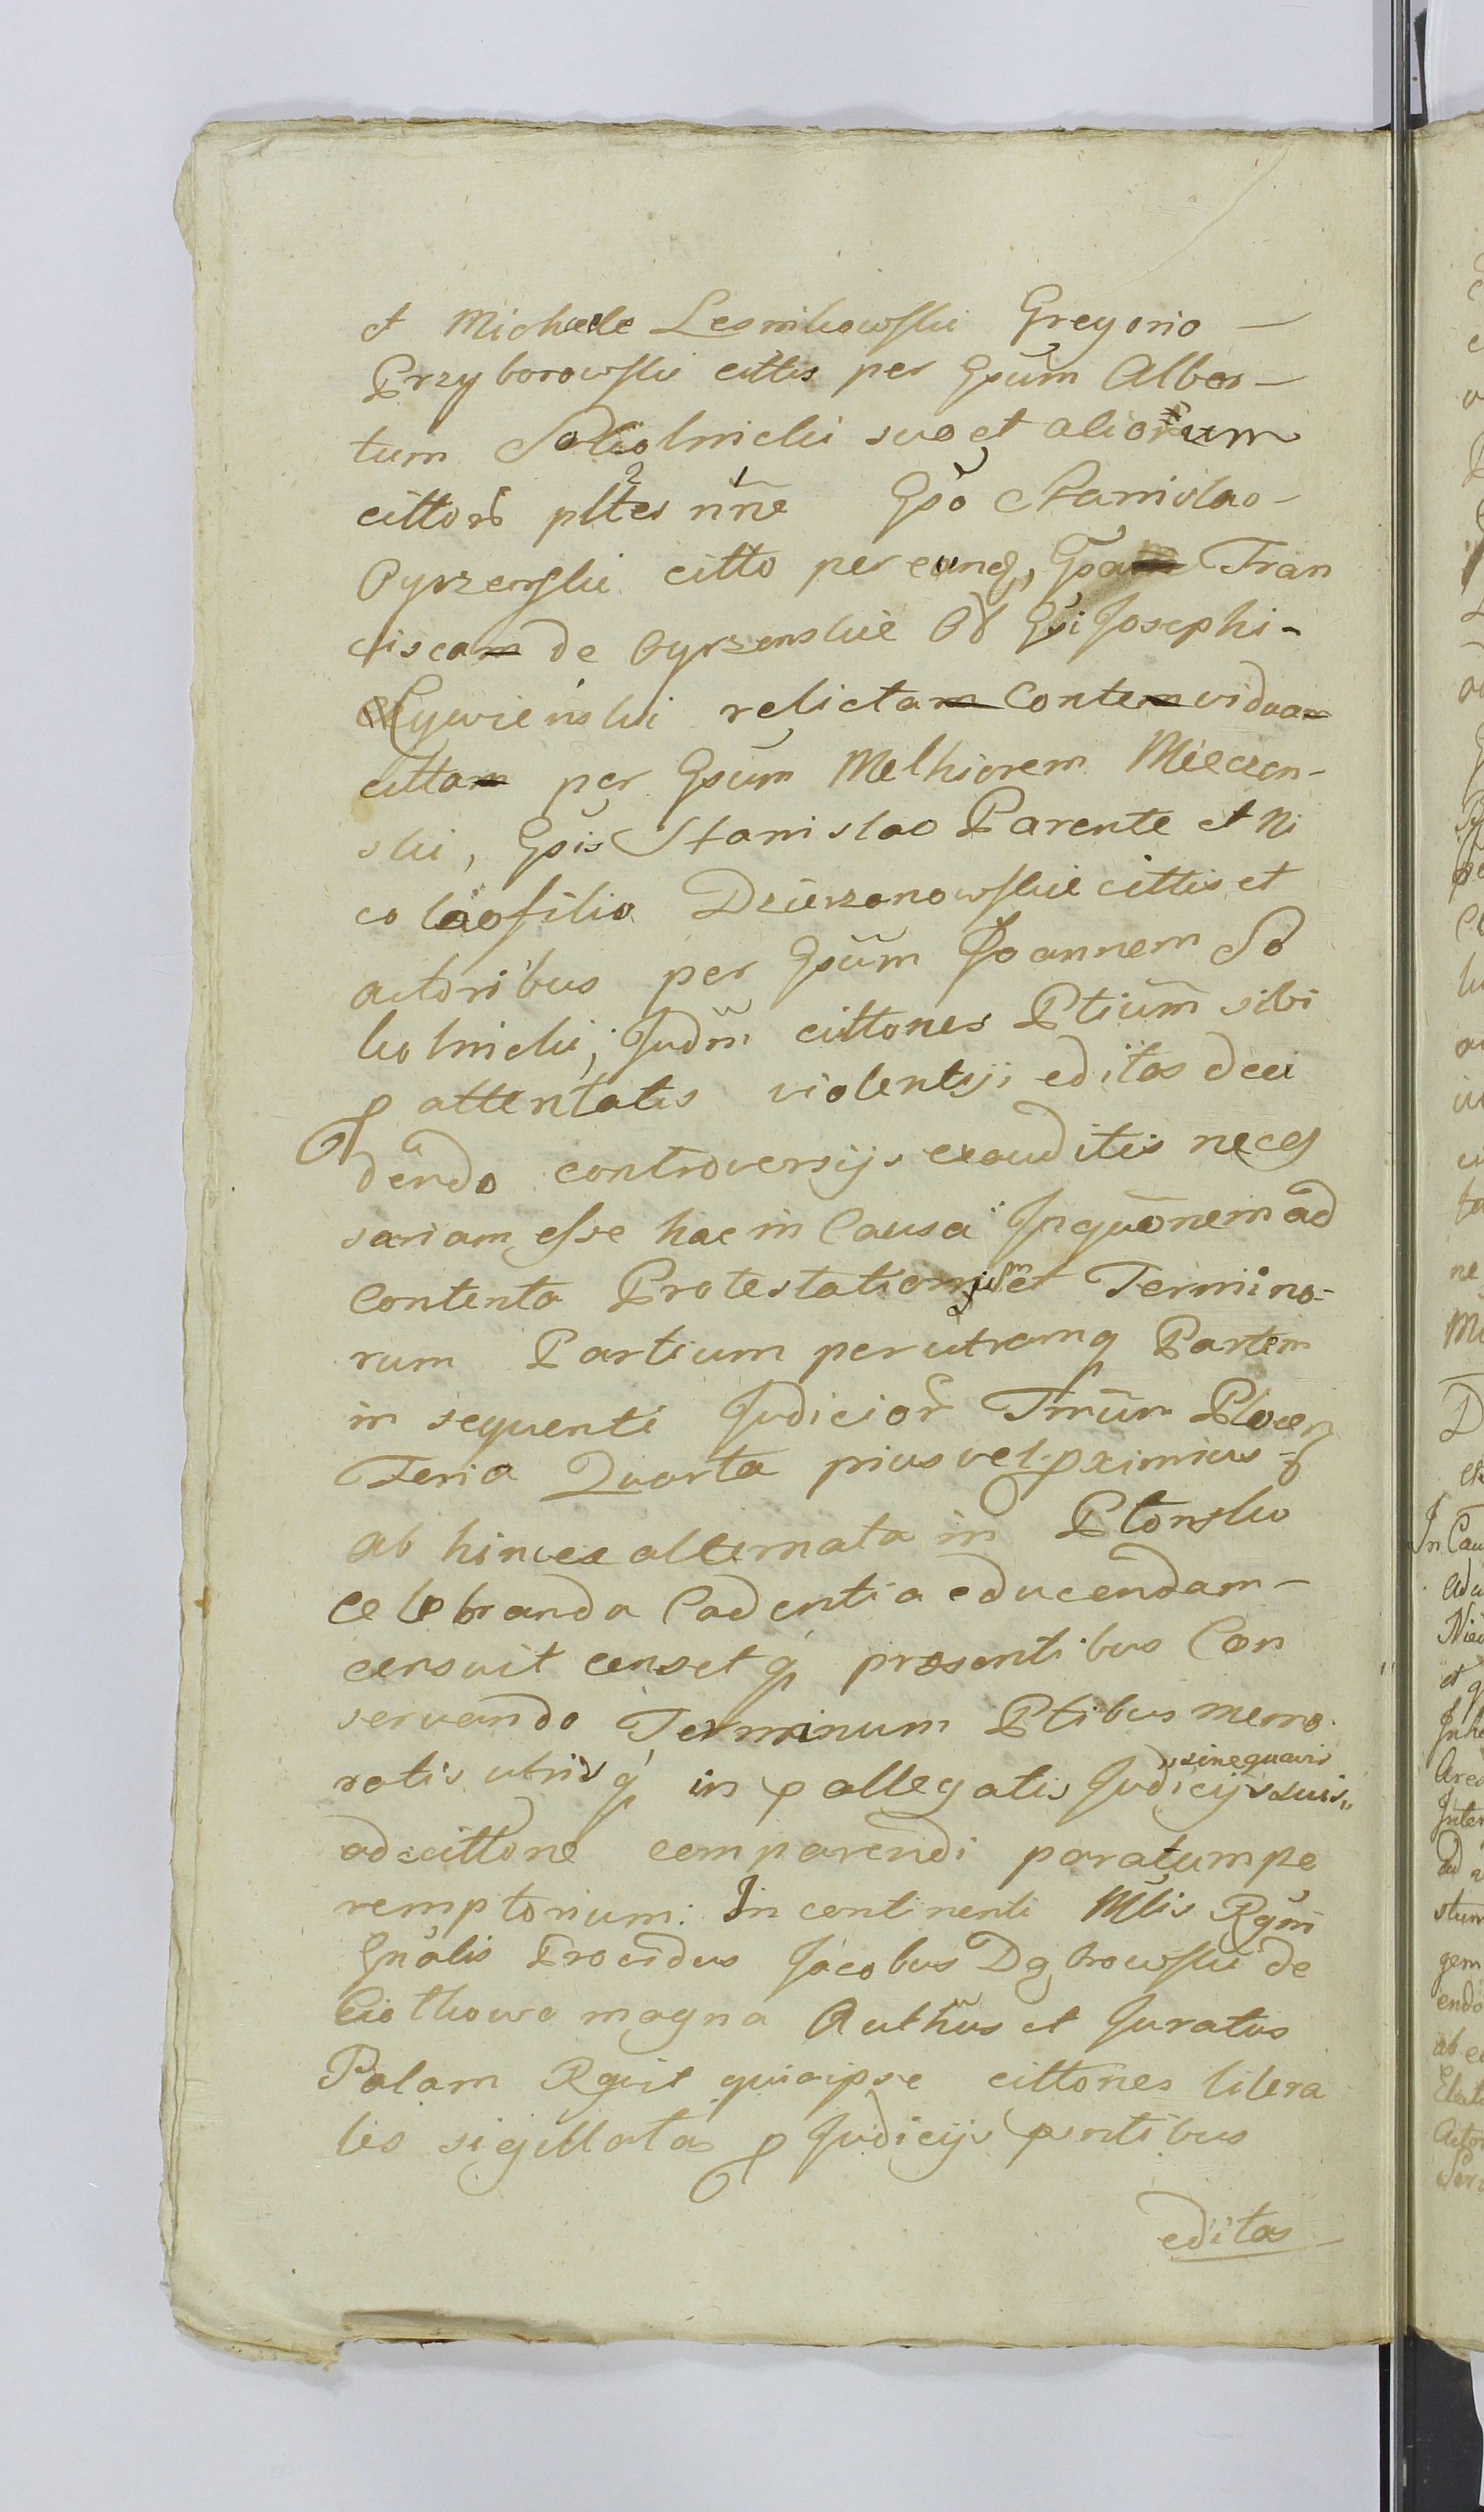 et Michaele Lesnikowski Gregorio —
Przyborowski cittis per Gsum Alber-
tum Sokolnicki suo et aliorum
cittor pltes nne Gso Stanislao-
Pyrzenski citto per eundq, Gsam Fran
ciscam de Pyrzenskie Od Gsi Josephi-
Zywienski relictam Contem viduam
cittam per Gsum Melhiorem Mieczen-
ski, Gsis Stanislao Parente et Ni
colao filio Dzierzanowskie cittis et
actoribus per Gsum Joannem So
kolnicki; Judm cittones Ptium sibi
p attentatis violentijs editas deci
dendo controversijs exauditis neces
sariam esse hac in Causa Inquonem ad
Contenta Protestationum et Termino-
rum Partium per utramq Partem
in sequenti Judicior Tmum Plocen
Feria Quarta prius vel pximius
ab hinc ex alternata in Plonsko
celebranda Cadentia educendam-
censuit censetq presentibus Con
servando Terminum Ptibus memo
ratis utrisq in pallegatis Judicijs suis
sine quavis
adcittone comparendi paratum pe
remptorium: In continenti Mtlis Rgni
Gnalis Providus Jacobus Dąbrowski de
Ciothowo magna Authus et Juratus
Palam Rgvit quia ipse cittones litera
les sigillatas p Judicijs pntibus
editas